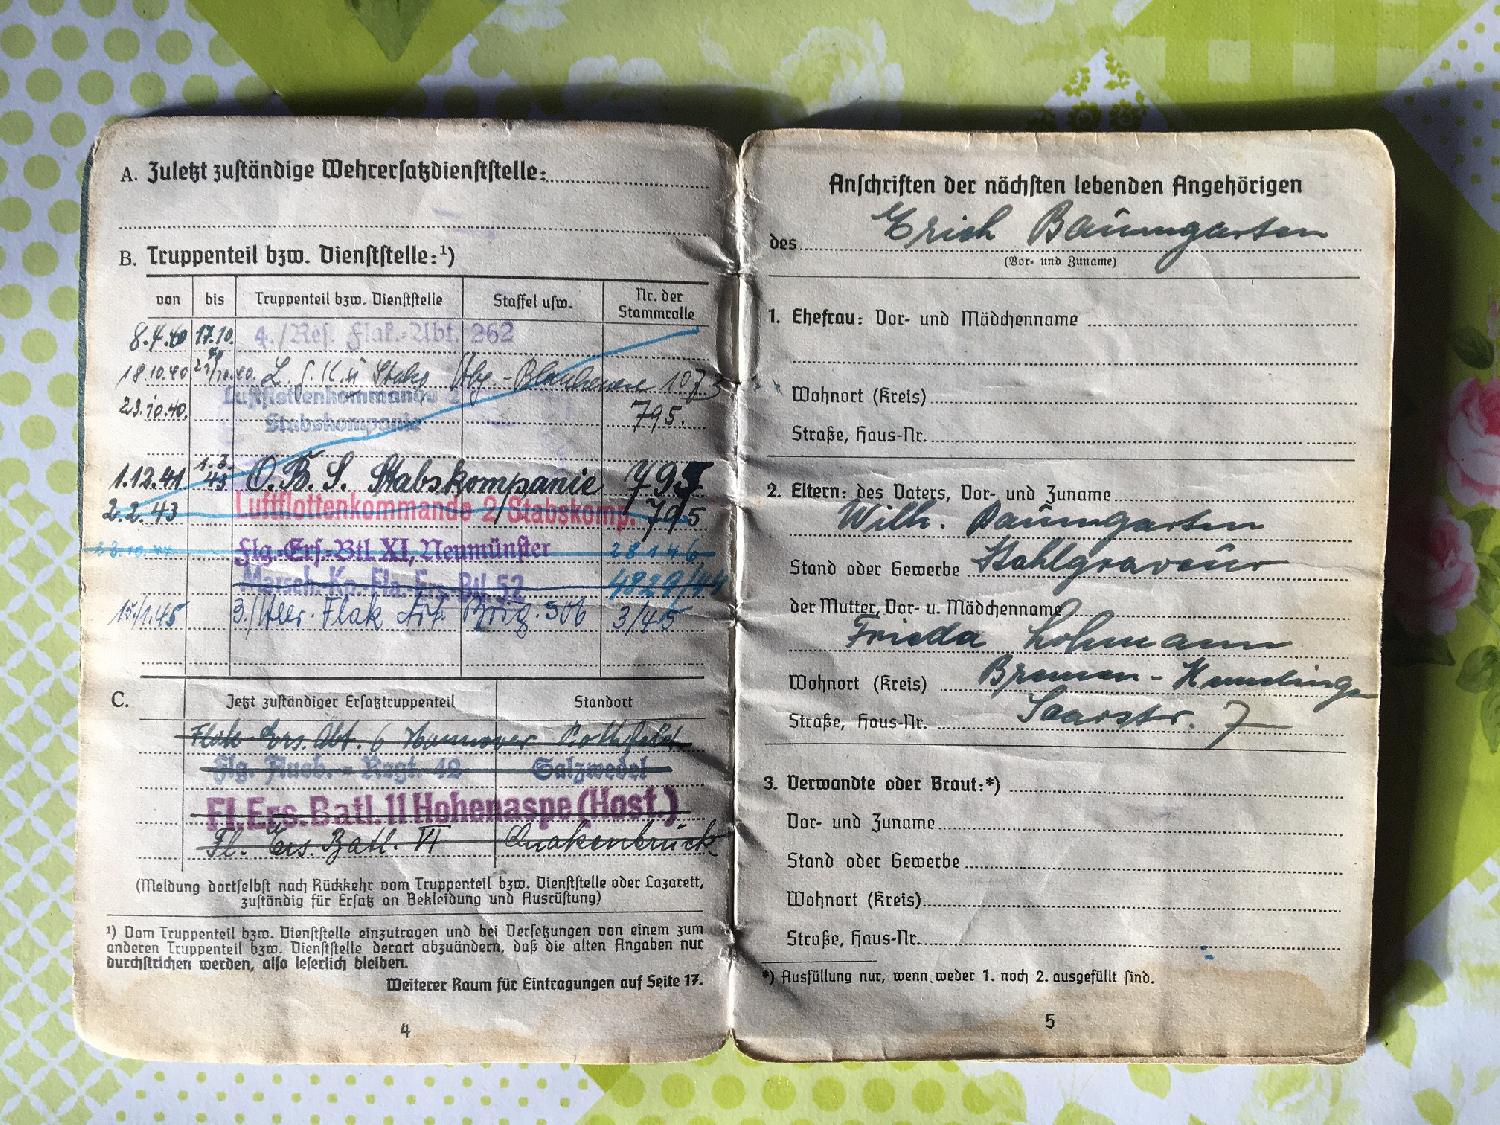 A. Zuletzt zuständige Wehrersatzdienststelle:
B. Truppenteil bzw. Dienststelle:¹)
von bis Truppenteil bzw. Dienststelle Staffel usw. Nr. der Stammrolle
8.4.40 17.10. 4./Res. Flak.-Abt. 262
18.10.40 L. 107
23.10.40. Luftflottenkommando 2 795.
Stabskompanie
1.12.41 1.2.43 O.B.S. Stabskompanie 795
2.2.43 Luftflottenkommando 2/Stabskomp. 795
Flg.-Ers.-Btl XI, Neumünster 28146
Marsch-Kp. Fla. Ers. Btl. 52 4829/44
15/1.45 3./Heer. Flak Art. Brig. 506 3/45
C. Jetzt zuständiger Ersatztruppenteil Standort
Flak Ers. Abt. 6 Hannover Bothfeld
Flg. Ausb.-Regt. 42 Salzwedel
Fl.Ers.Batl.11 Hohenaspe (Host.)
Fl. Ers. Batl. VI Quakenbrück
(Meldung dortselbst nach Rückkehr vom Truppenteil bzw. Dienststelle oder Lazarett,
zuständig für Ersatz an Bekleidung und Ausrüstung)
¹) Vom Truppenteil bzw. Dienststelle einzutragen und bei Versetzungen von einem zum
anderen Truppenteil bzw. Dienststelle derart abzuändern, daß die alten Angaben nur
durchstrichen werden, also leserlich bleiben.
Weiterer Raum für Eintragungen auf Seite 17.
4
Anschriften der nächsten lebenden Angehörigen
des Erich Baumgarten
(Vor- und Zuname)
1. Ehefrau: Vor- und Mädchenname
Wohnort (Kreis)
Straße, Haus-Nr.
2. Eltern: des Vaters, Vor- und Zuname
Wilh. Baumgarten
Stand oder Gewerbe Stahlgraveur
der Mutter, Vor- u. Mädchenname
Frieda Lohmann
Wohnort (Kreis) Bremen - Hemelingen
Straße, Haus-Nr. Saarstr. 7
3. Verwandte oder Braut:*)
Vor- und Zuname
Stand oder Gewerbe
Wohnort (Kreis)
Straße, Haus-Nr.
*) Ausfüllung nur, wenn weder 1. noch 2. ausgefüllt sind.
5